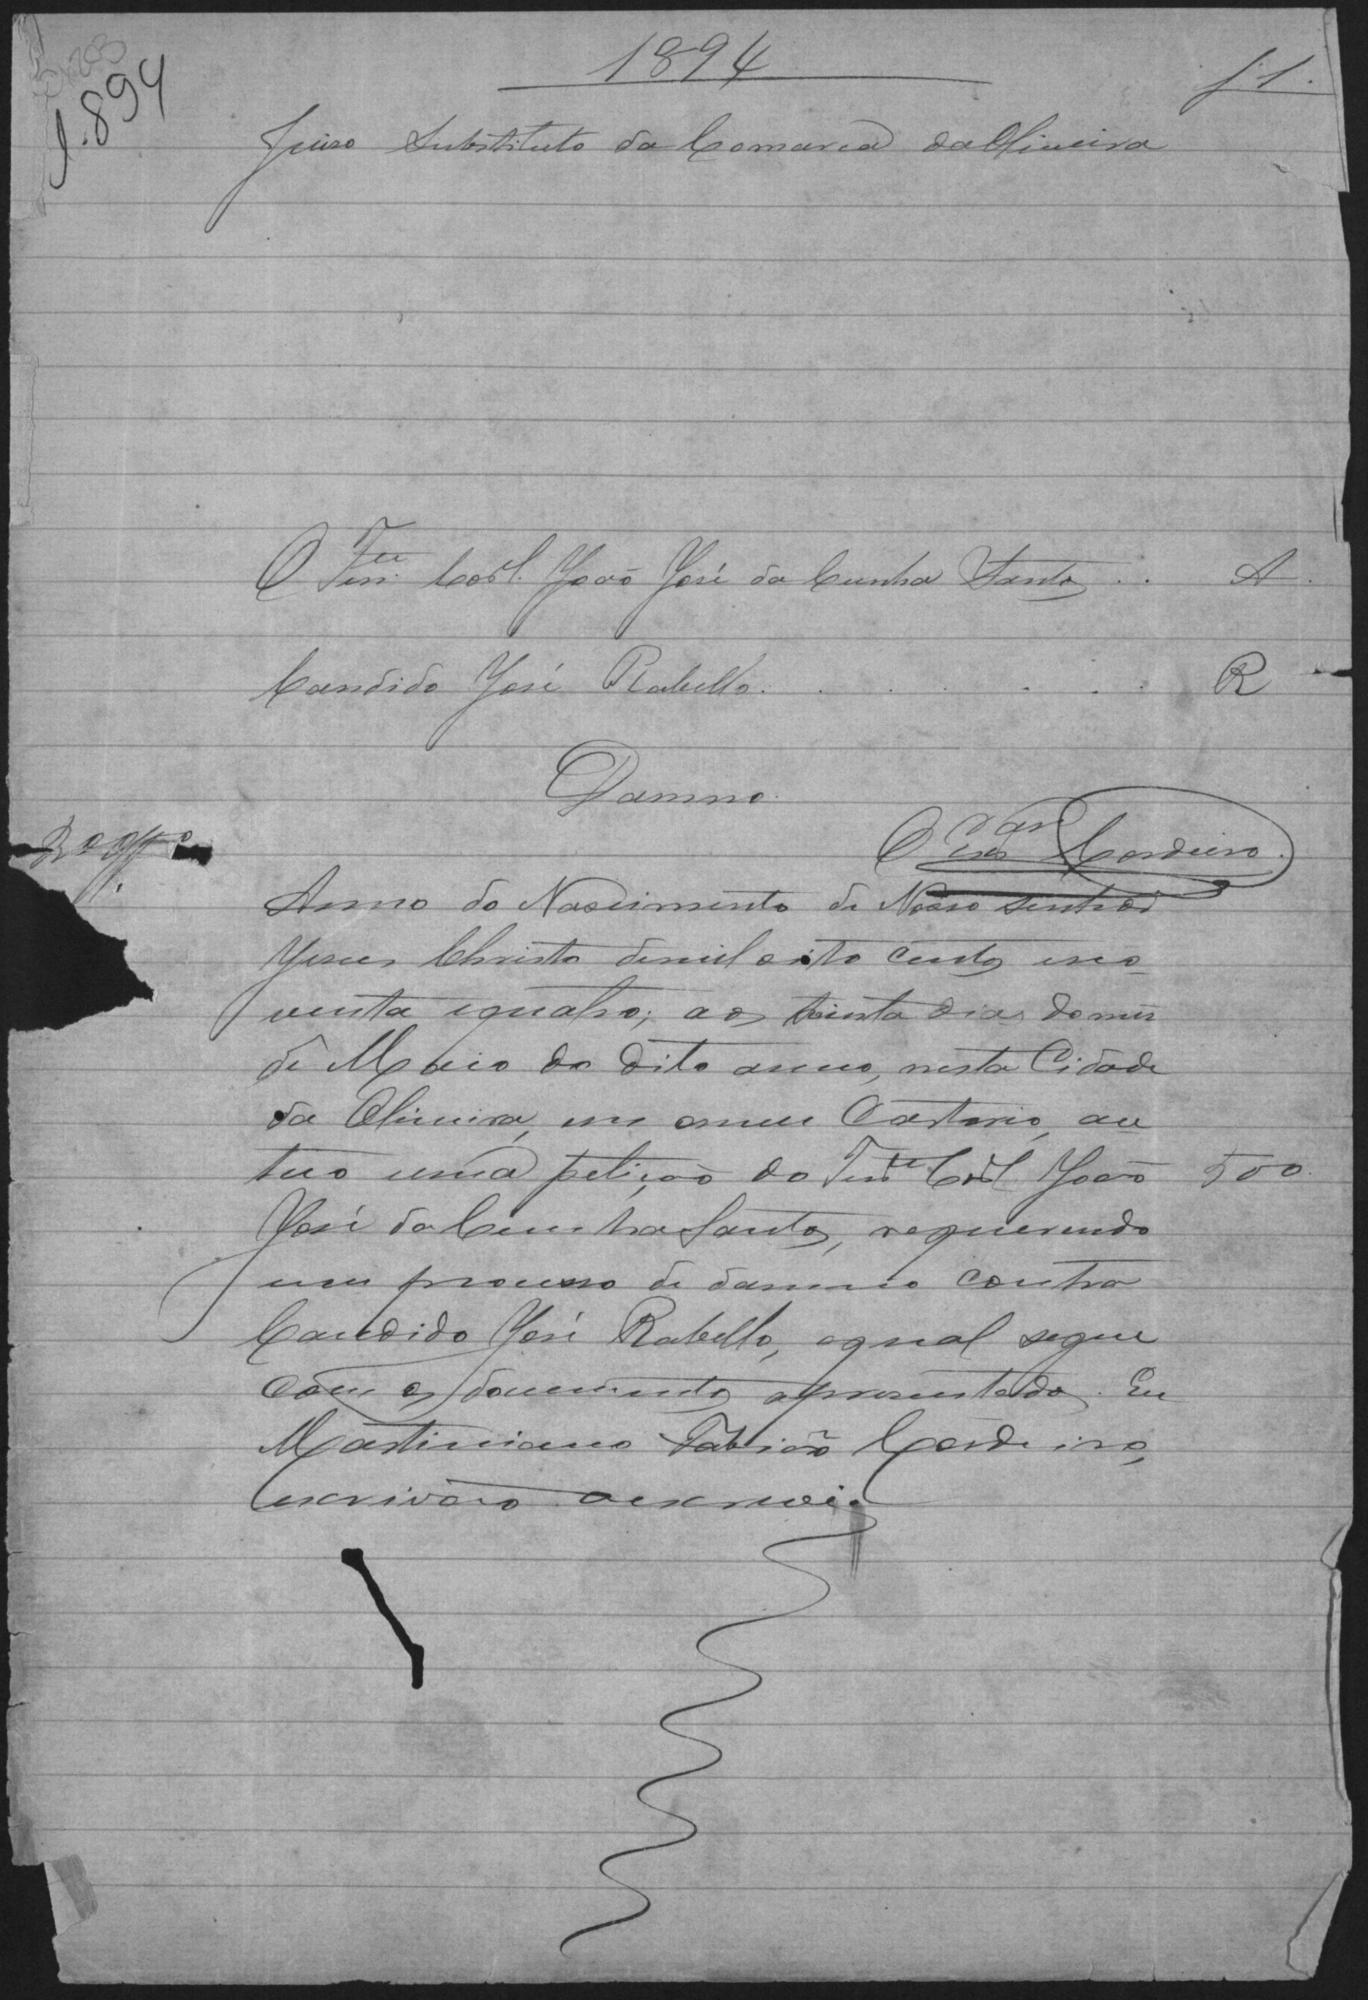 1894
f 1.
1.894
Juiso Substituto da Comarca da Oliveira
O Ten.te Cor.l João José da Cunha Santos . . A.
Candido José Rabello. . . . . . . R
Damno.
O Escr.am Cordeiro.
Anno do Nascimento de Nosso Senhor
Jesus Christo de mil oito centos eno-
venta equatro; aos trinta dias do mes
de Maio do dito anno, nesta Cidade
da Oliveira, em omeu Cartorio, au
tuo uma petição do Ten.te Cor.l João 500.
José da Cunha Santos, requerendo
um processo de damno contra
Candido José Rabello, oqual segue
com os documentos apresentados. Eu
Martiniano Fabião Cordeiro,
escrivão oescrevi.